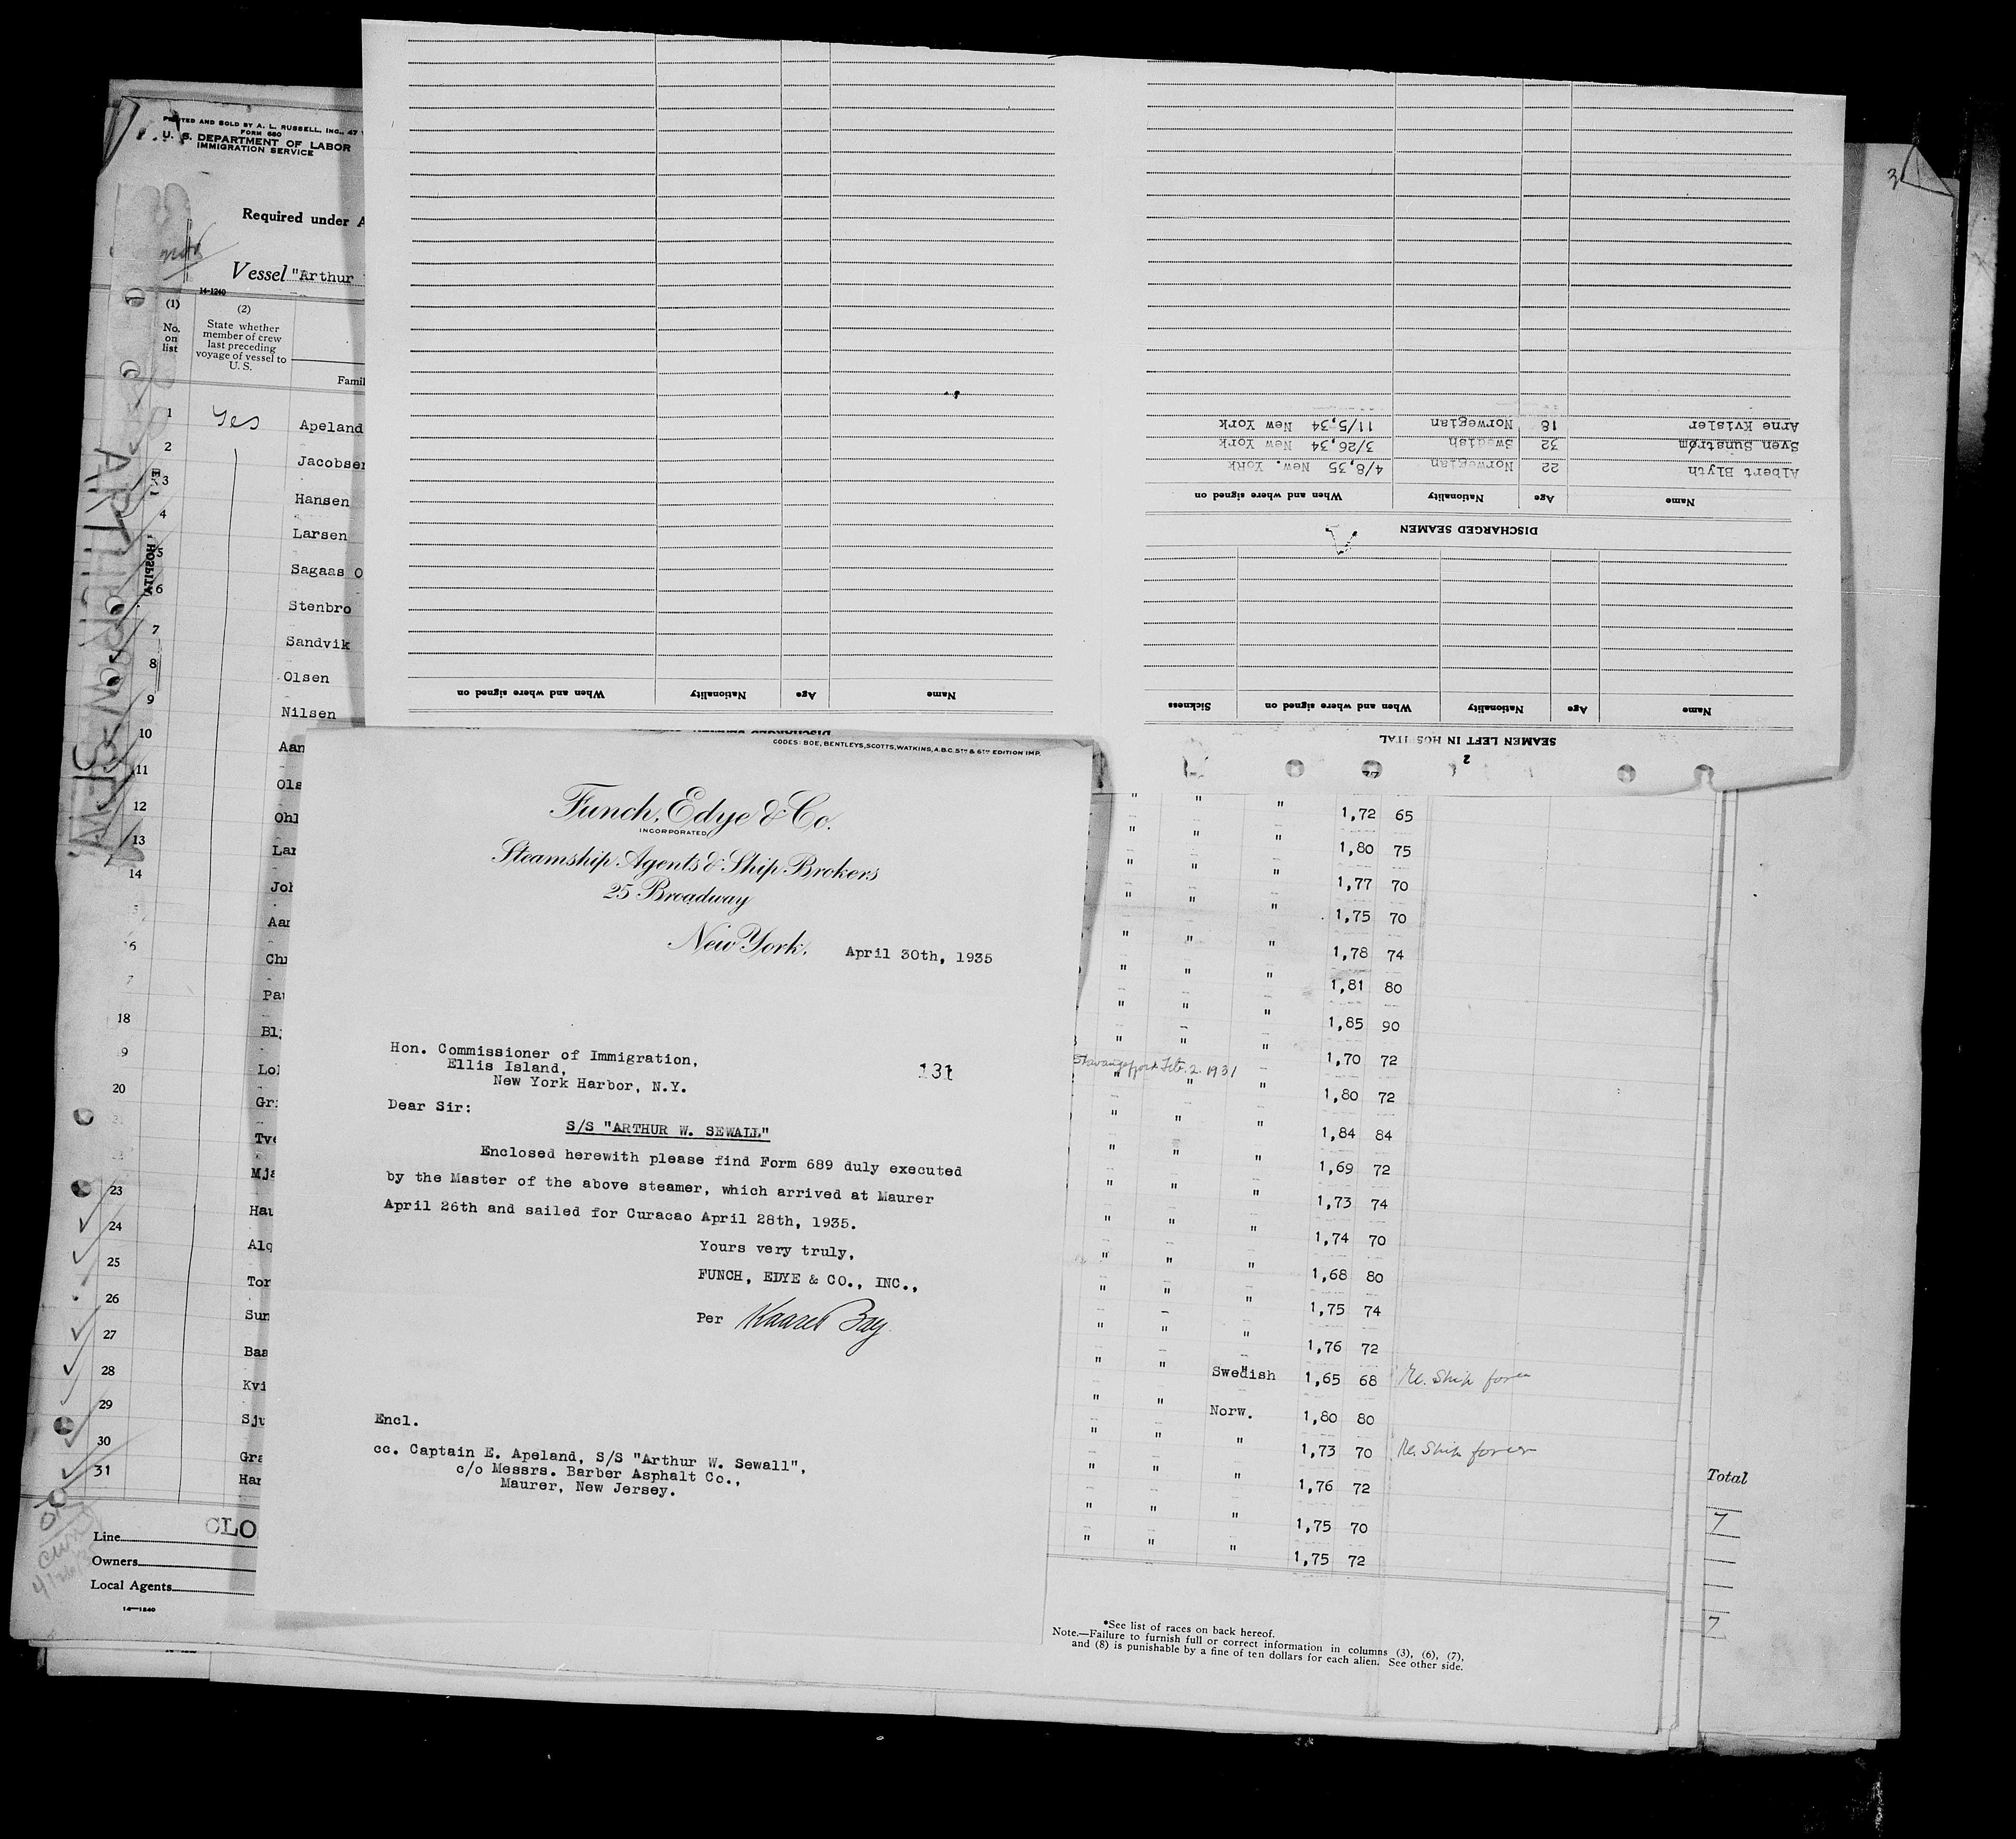 PRINTED AND SOLD BY A. L. RUSSELL, INC., 47
FORM 680
U. S. DEPARTMENT OF LABOR
IMMIGRATION SERVICE
Required under A
Vessel "Arthur
14-1240
(1)
No.
on
list
(2)
State whether
member of crew
last preceding
voyage of vessel to
U. S.
Famil
1 Yes Apeland
2 Jacobsen
3 Hansen
4 Larsen
5 Sagaas O
6 Stenbro
7 Sandvik
8 Olsen
9 Nilsen
10 Aan
11 Ols
12 Ohl
13 Lar
14 Joh
Aar
6 Chr
7 Pau
18 Bl
9 Lo
20 Gr
Tve
Mja
23 Hau
24 Alq
25 Tor
26 Sun
27 Baa
28 Kvi
29 Sju
30 Gra
31 Han
ARTHUR W SEWA
HOSPITA
CLO
Line
Owners
Local Agents
14—1240
2
SEAMEN LEFT IN HOSPITAL
Name Age Nationality When and where signed on Sickness
DISCHARGED SEAMEN
Name Age Nationality When and where signed on
Albert Blyth 22 Norwegian 4/8,35 New. York
Sven Sunstrøm 32 Swedish 3/26,34 New York
Arne Kvisler 18 Norwegian 11/5,34 New York
Name Age Nationality When and where signed on
CODES: BOE, BENTLEYS, SCOTTS, WATKINS, A.B.C. 5TH & 6TH EDITION IMP.
Funch, Edye & Co.
INCORPORATED
Steamship Agents & Ship Brokers
25 Broadway
New York. April 30th, 1935
Hon. Commissioner of Immigration,
Ellis Island,
New York Harbor, N.Y.
131
Dear Sir:
S/S "ARTHUR W. SEWALL"
Enclosed herewith please find Form 689 duly executed
by the Master of the above steamer, which arrived at Maurer
April 26th and sailed for Curacao April 28th, 1935.
Yours very truly,
FUNCH, EDYE & CO., INC.,
Per Kaare Bay
Encl.
cc. Captain E. Apeland, S/S "Arthur W. Sewall",
c/o Messrs. Barber Asphalt Co.,
Maurer, New Jersey.
" " " 1,72 65
" " " 1,80 75
" " " 1,77 70
" " " 1,75 70
" " " 1,78 74
" " " 1,81 80
" " " 1,85 90
" " " 1,70 72
Stavangerfjord Feb. 2. 1931
" " " 1,80 72
" " " 1,84 84
" " " 1,69 72
" " " 1,73 74
" " " 1,74 70
" " " 1,68 80
" " " 1,75 74
" " " 1,76 72
" " Swedish 1,65 68 Re. Ship foren
" " Norw. 1,80 80
" " " 1,73 70 Re. Ship foren
" " " 1,76 72
" " " 1,75 70
" " " 1,75 72
*See list of races on back hereof.
Note.—Failure to furnish full or correct information in columns (3), (6), (7),
and (8) is punishable by a fine of ten dollars for each alien. See other side.
3
Total
7
7